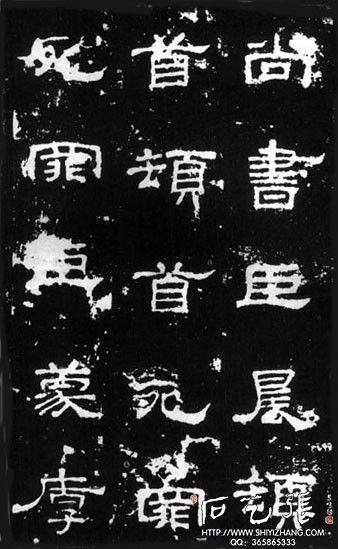 尚書臣晨頓
首頓首死罪
死罪臣蒙厚
石艺張
HTTP://WWW.SHIYIZHANG.COM
QQ: 365865333